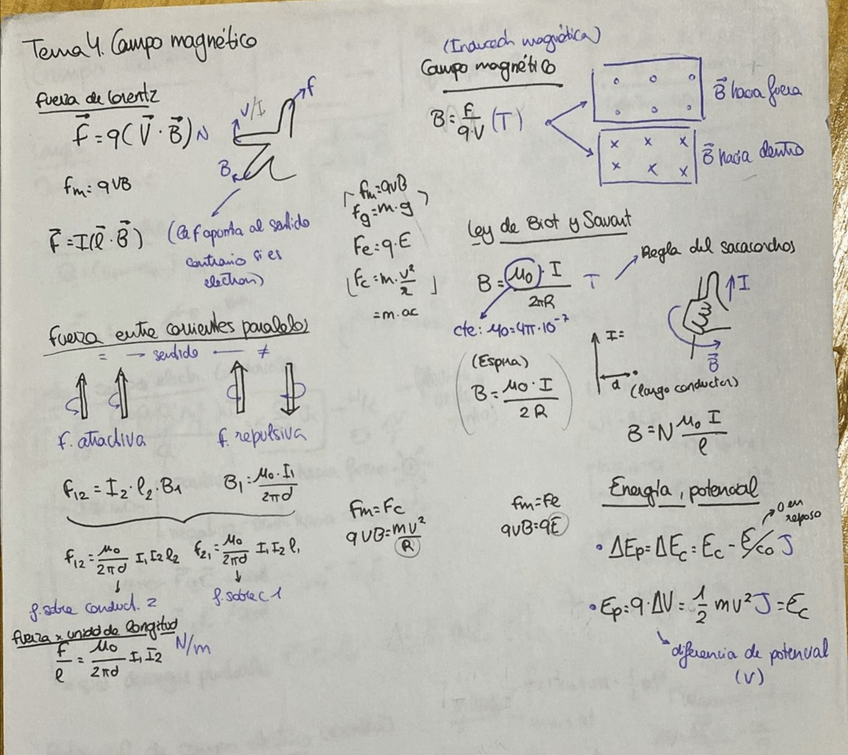 Tema 4. Campo magnético
Fuerza de Lorentz
F⃗ = q(V⃗ · B⃗) N
fm = qvB
F⃗ = I(l⃗ · B⃗)
V/I
f
B
(la f aponta al sentido
contrario si es
electron)
fm = qvB
fg = m·g
Fe = q·E
Fc = m·v²/r
= m·ac
Fuerza entre corrientes paralelas
= → sentido ← ≠
f. atractiva
f. repulsiva
f12 = I2·l2·B1
B1 = μ0·I1/2πd
f12 = μ0/2πd I1 I2 l2
f21 = μ0/2πd I1 I2 l1
f. sobre conduct. 2
f. sobre c 1
fuerza x unidad de longitud
f/l = μ0/2πd I1 I2 N/m
Fm = Fc
qvB = mv²/R
(Inducción magnética)
Campo magnético
B = F/q·V (T)
B⃗ hacia fuera
B⃗ hacia dentro
Ley de Biot y Savart
B = μ0·I/2πR T
Regla del sacacorchos
cte: μ0 = 4π·10⁻⁷
I
B⃗
(Espira)
B = μ0·I/2R
I =
d
(largo conductor)
B = N μ0 I/l
Fm = Fe
qvB = qE
Energía, potencial
0 en
reposo
• ΔEp = ΔEc = Ec - Eco J
• Ep = q·ΔV = 1/2 mv² J = Ec
diferencia de potencial
(V)